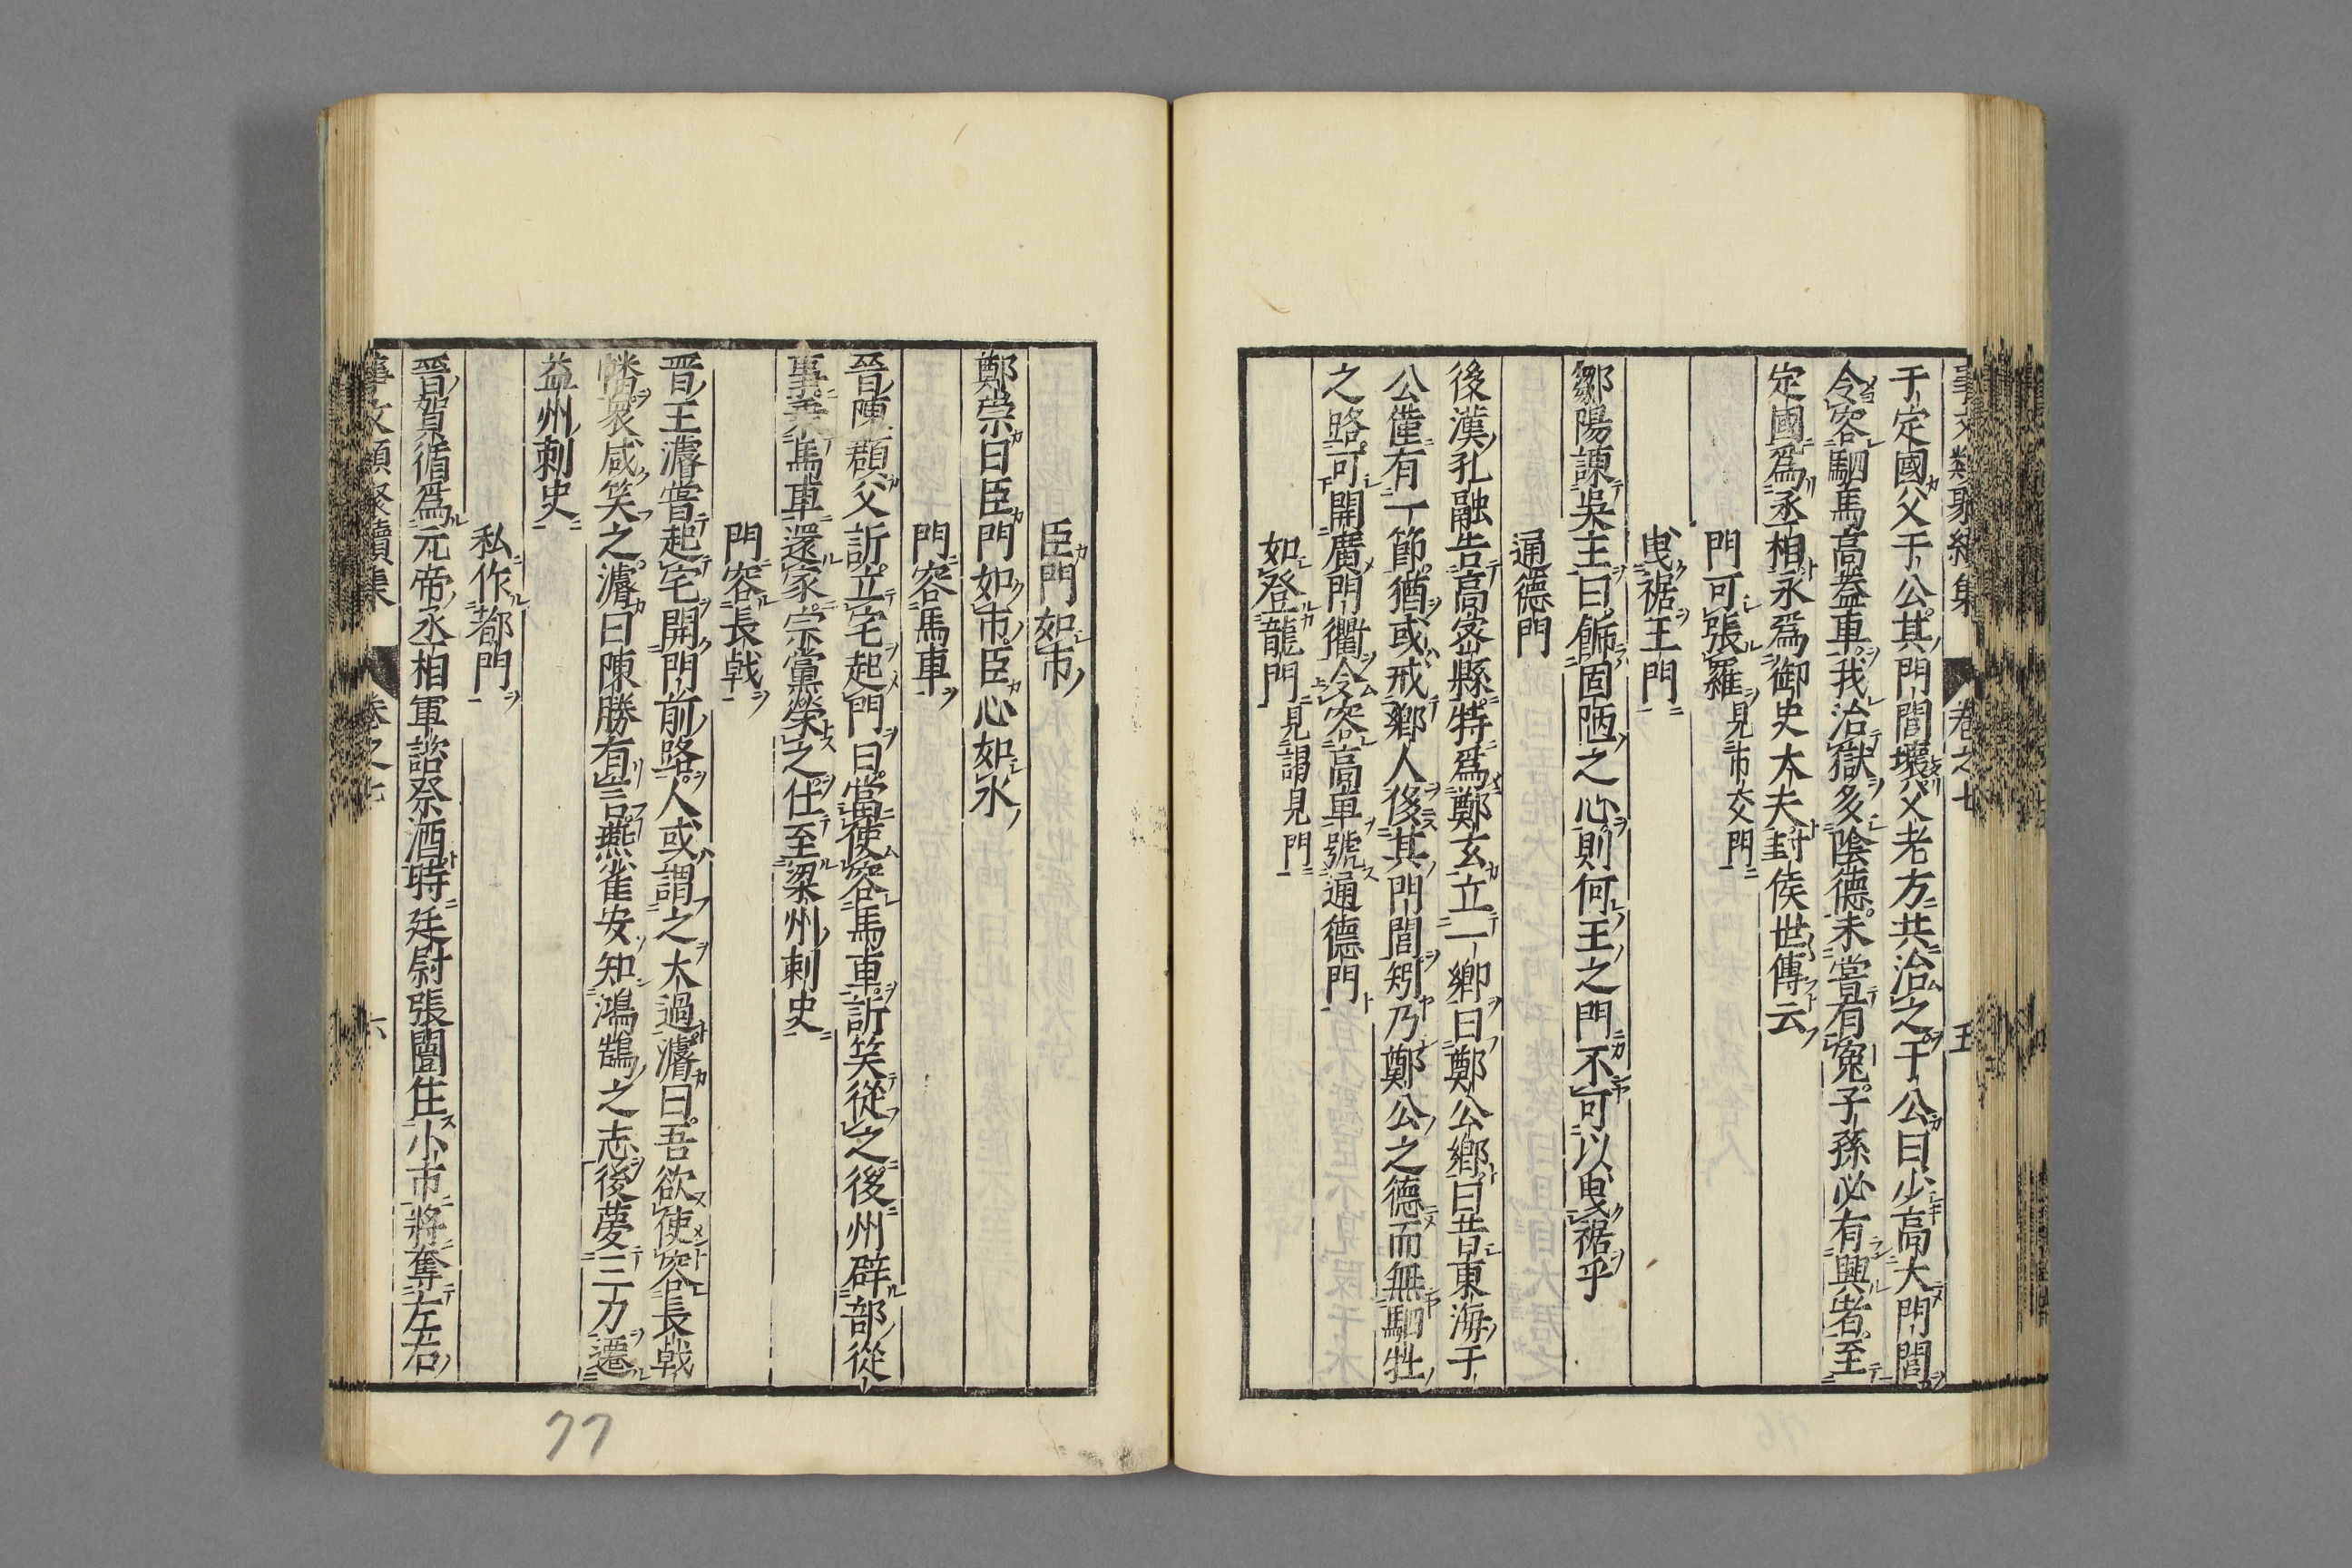 于定國父于公其門閭壞父老方共治之于公曰少高大門閭
令容駟馬高蓋車我治獄多陰德未嘗有寃子孫必有興者至
定國爲丞相永爲御史大夫封侯世傳云
門可張羅見市交門
曳裾王門
鄒陽諫吳王曰飾固陋之心則何王之門不可以曳裾乎
通德門
後漢孔融告高密縣特爲鄭玄立一鄉曰鄭公鄉曰昔東海于
公僅有一節猶或戒鄉人侈其門閭矧乃鄭公之德而無駟牡
之路可開廣門衢令容高車號通德門
如登龍門見謁見門
臣門如市
鄭崇曰臣門如市臣心如水
門容馬車
晉陳頵父訢立宅起門曰當使容馬車訢笑從之後州辟部從
事乘馬車還家宗黨榮之仕至梁州刺史
門容長戟
晉王濬嘗起宅開門前路人或謂之太過濬曰吾欲使容長戟
幡衆咸笑之濬曰陳勝有言燕雀安知鴻鵠之志後夢三刀遷
益州刺史
私作都門
晉賀循爲元帝丞相軍諮祭酒時廷尉張闓住小市將奪左右
事文類聚續集 卷之七 六
77